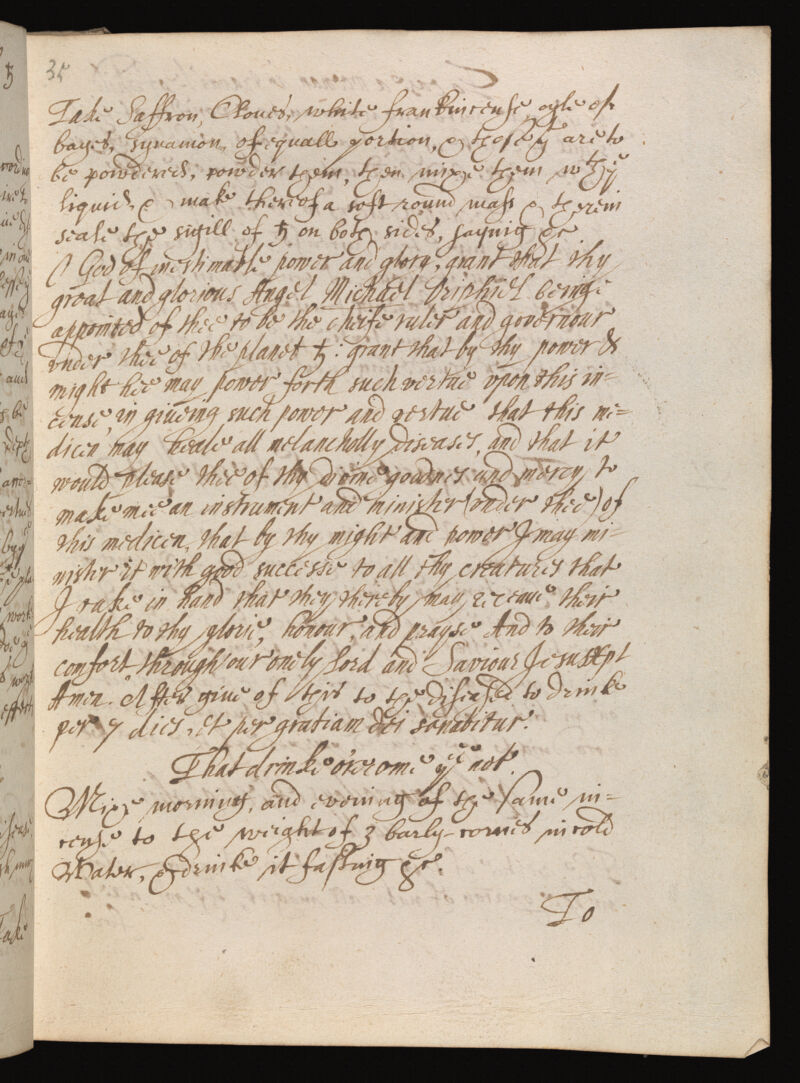 35
Take Saffron, Cloues, white frankincense, oyle of
bayes, synamon, of equall portion, & those yt are to
be powdered, powder them, then mixe them wth ye
liquid, & make thereof a soft round mass & therein
seale the sigill of ♄ on both sides, sayinig &c
O God of inestimable power and glory, grant that thy
great and glorious Angel Michael Oriphiel beinge
appointed of thee to be the cheife ruler and governour
vnder thee of the planet ♄: grant that by thy power &
might hee may power forth such vertue vpon this in=
cense, in giueing such power and vertue that this me=
dicen may heale all melancholly diseases, and that it
would please thee of thy divine goodnes and mercy to
make mee an instrument and minister (vnder thee) of
this medicen, that by thy might and power I may mi=
nister it with good successe to all thy creatures that
I take in hand that they thereby may receaue their
health to thy glorie, honour, and prayse And to their
comfort through our onely Lord and Saviour Jesus Xpt
Amen. After giue of this to the diseased to drinke
per 7 dies, et per gratiam dei sanatitur.
That drinke overcome ye not.
Mixe morning, and evening of the same in=
cense to the weight of 3 barly-cornes in cold
Water, & drinke it fasting &c.
To